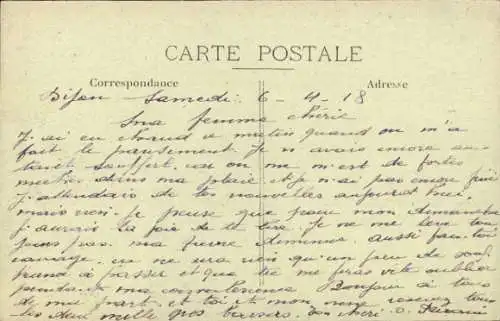 CARTE POSTALE
Correspondance Adresse
Dijon Samedi 6 - 4 - 18
ma femme chérie
J'ai eu chaud ce matin quand on m'a
fait le pansement Je n'avais encore au-
tant souffert car on me m'est de fortes
dans ma plaie et je n'ai pas encore fini
J'attendais de tes nouvelles aujourd'hui
mais rien. Je pense que pour mon dimanche
j'aurais la joie de te lire Je ne me lève tou
jours pas. ma fièvre diminue. aussi
courage. ce ne sera rien qu'un peu de
à passer et que tu me feras vite oublier
pendant ma convalescence Bonjour à tous
de ma part et toi et mon recevez tous
les deux mille gros baisers. ton chéri